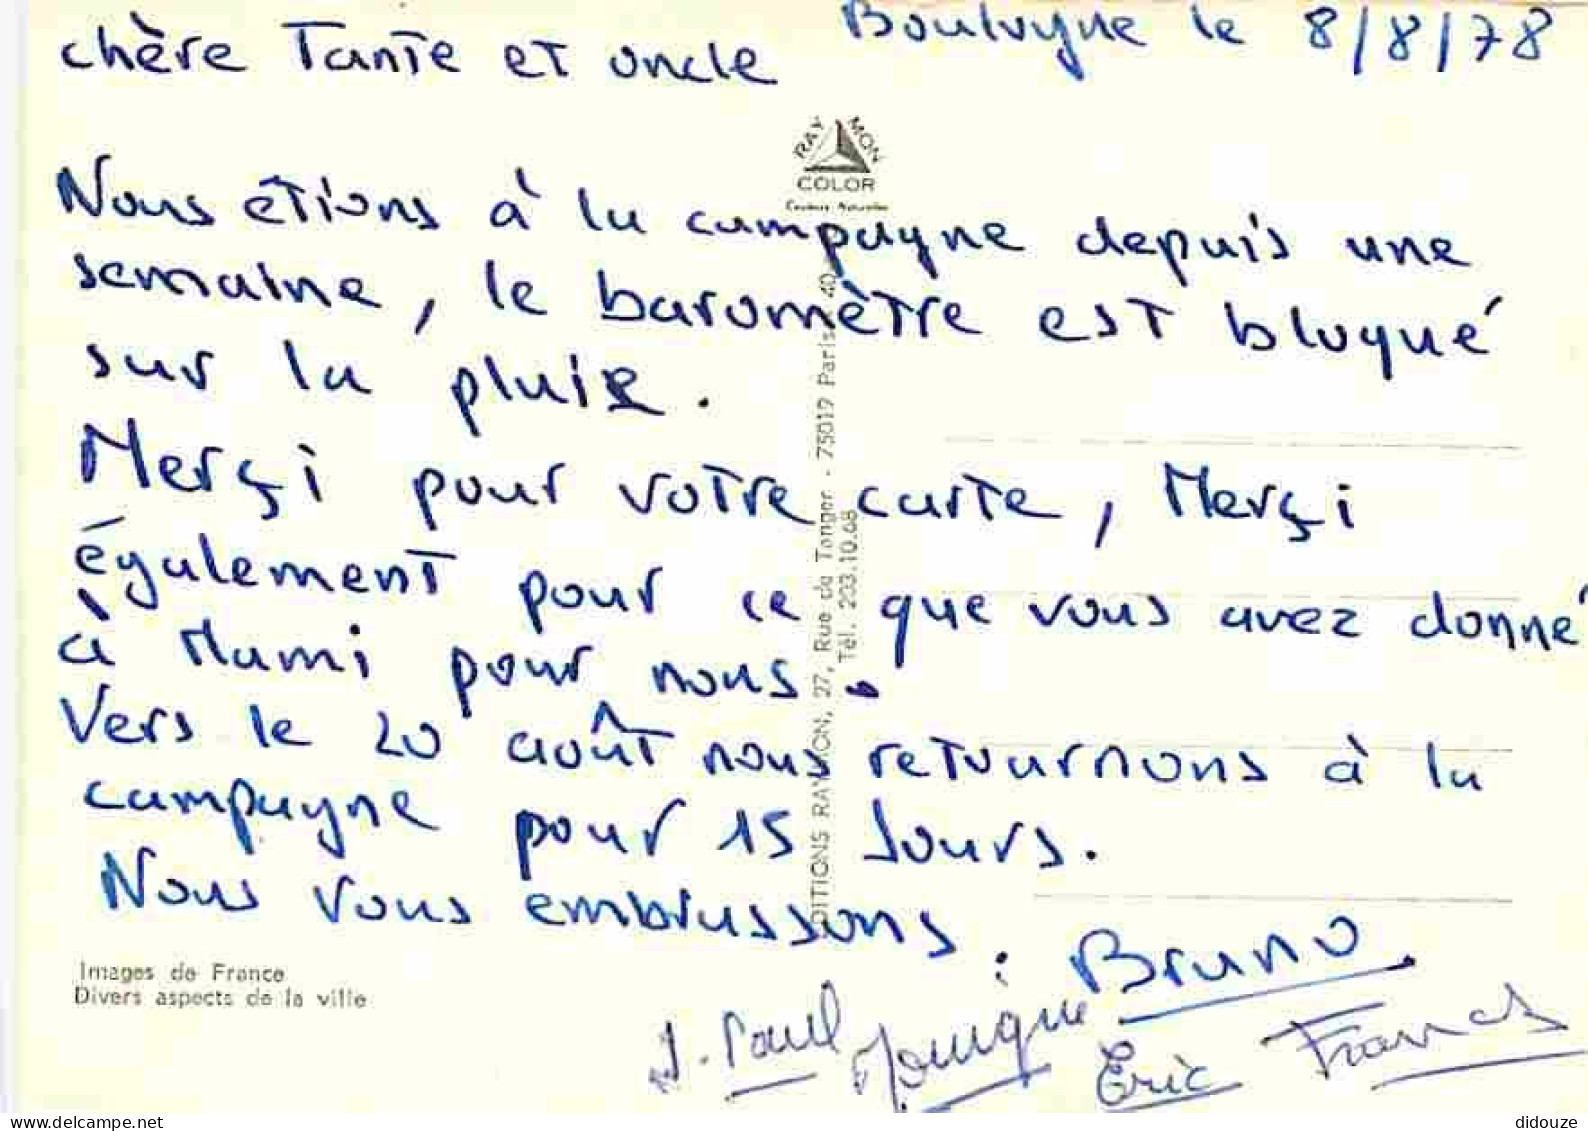 Boulogne le 8/8/78
chère Tante et oncle
RAYMON
COLOR
Couleurs Naturelles
Nous étions à la campagne depuis une
semaine, le baromètre est bloqué
sur la pluie.
Merçi pour votre carte, Merçi
également pour ce que vous avez donné
à Mami pour nous.
Vers le 20 août nous retournons à la
campagne pour 15 Jours.
Nous vous embrassons :
Bruno
J. Paul Monique Eric Francis
DITIONS RAYMON, 27, Rue de Tanger - 75019 Paris - 40
Tél. 203.10.68
Images de France
Divers aspects de la ville
delcampe.net
didouze